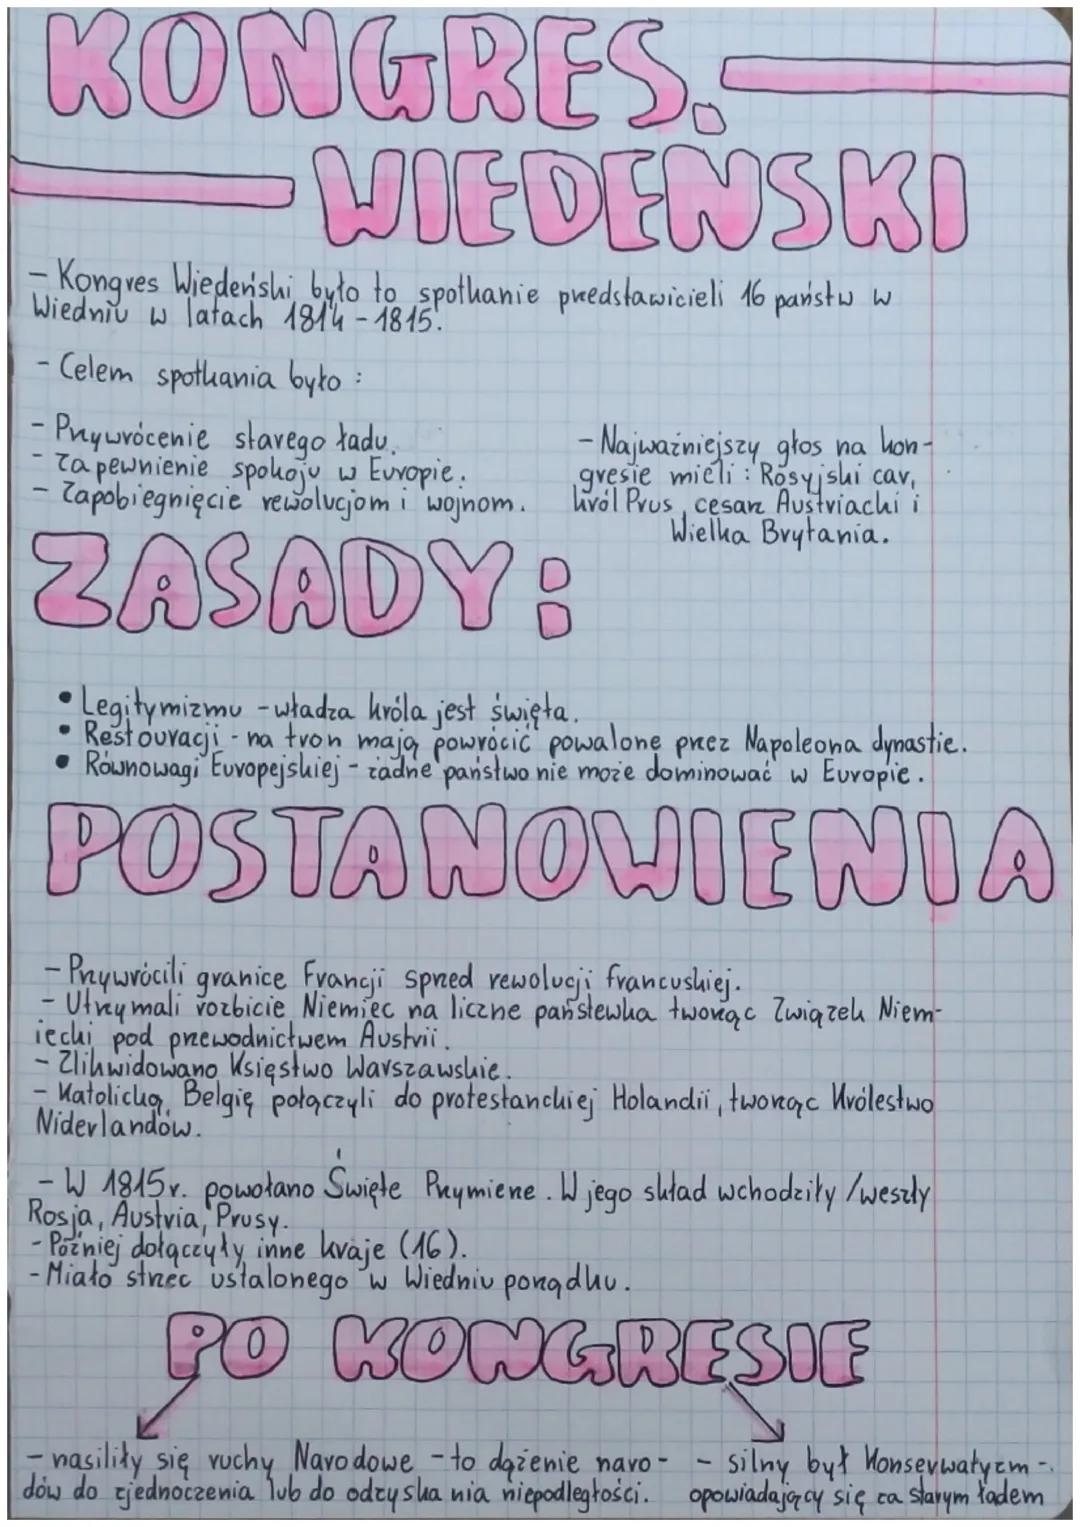 KONGRES.
WIEDEŃSKI
- Kongres Wiedeński było to spotkanie przedstawicieli 16 państw w
Wiedniu w latach 1814 - 1815.
- Celem spotkania było :
- Przywrócenie starego ładu.
- Zapewnienie spokoju w Europie.
- Zapobiegnięcie rewolucjom i wojnom.
- Najważniejszy głos na kon-
gresie mieli : Rosyjski car,
król Prus, cesarz Austriacki i
Wielka Brytania.
ZASADY:
• Legitymizmu - władza króla jest święta.
• Restouracji - na tron mają powrócić powalone przez Napoleona dynastie.
• Równowagi Europejskiej - żadne państwo nie może dominować w Europie.
POSTANOWIENIA
- Przywrócili granice Francji sprzed rewolucji francuskiej.
- Utrzymali rozbicie Niemiec na liczne państewka tworząc Związek Niem-
iecki pod przewodnictwem Austrii.
- Zlikwidowano Księstwo Warszawskie.
- Katolicką Belgię połączyli do protestanckiej Holandii, tworząc Królestwo
Niderlandów.
- W 1815r. powołano Święte Przymierze. W jego skład wchodziły / weszły
Rosja, Austria, Prusy.
- Później dołączyły inne kraje (16).
- Miało strzec ustalonego w Wiedniu porządku.
PO KONGRESIE
- nasiliły się ruchy Narodowe - to dążenie naro-
dów do zjednoczenia lub do odzyskania niepodległości.
- silny był Konserwatyzm -
opowiadający się za starym ładem